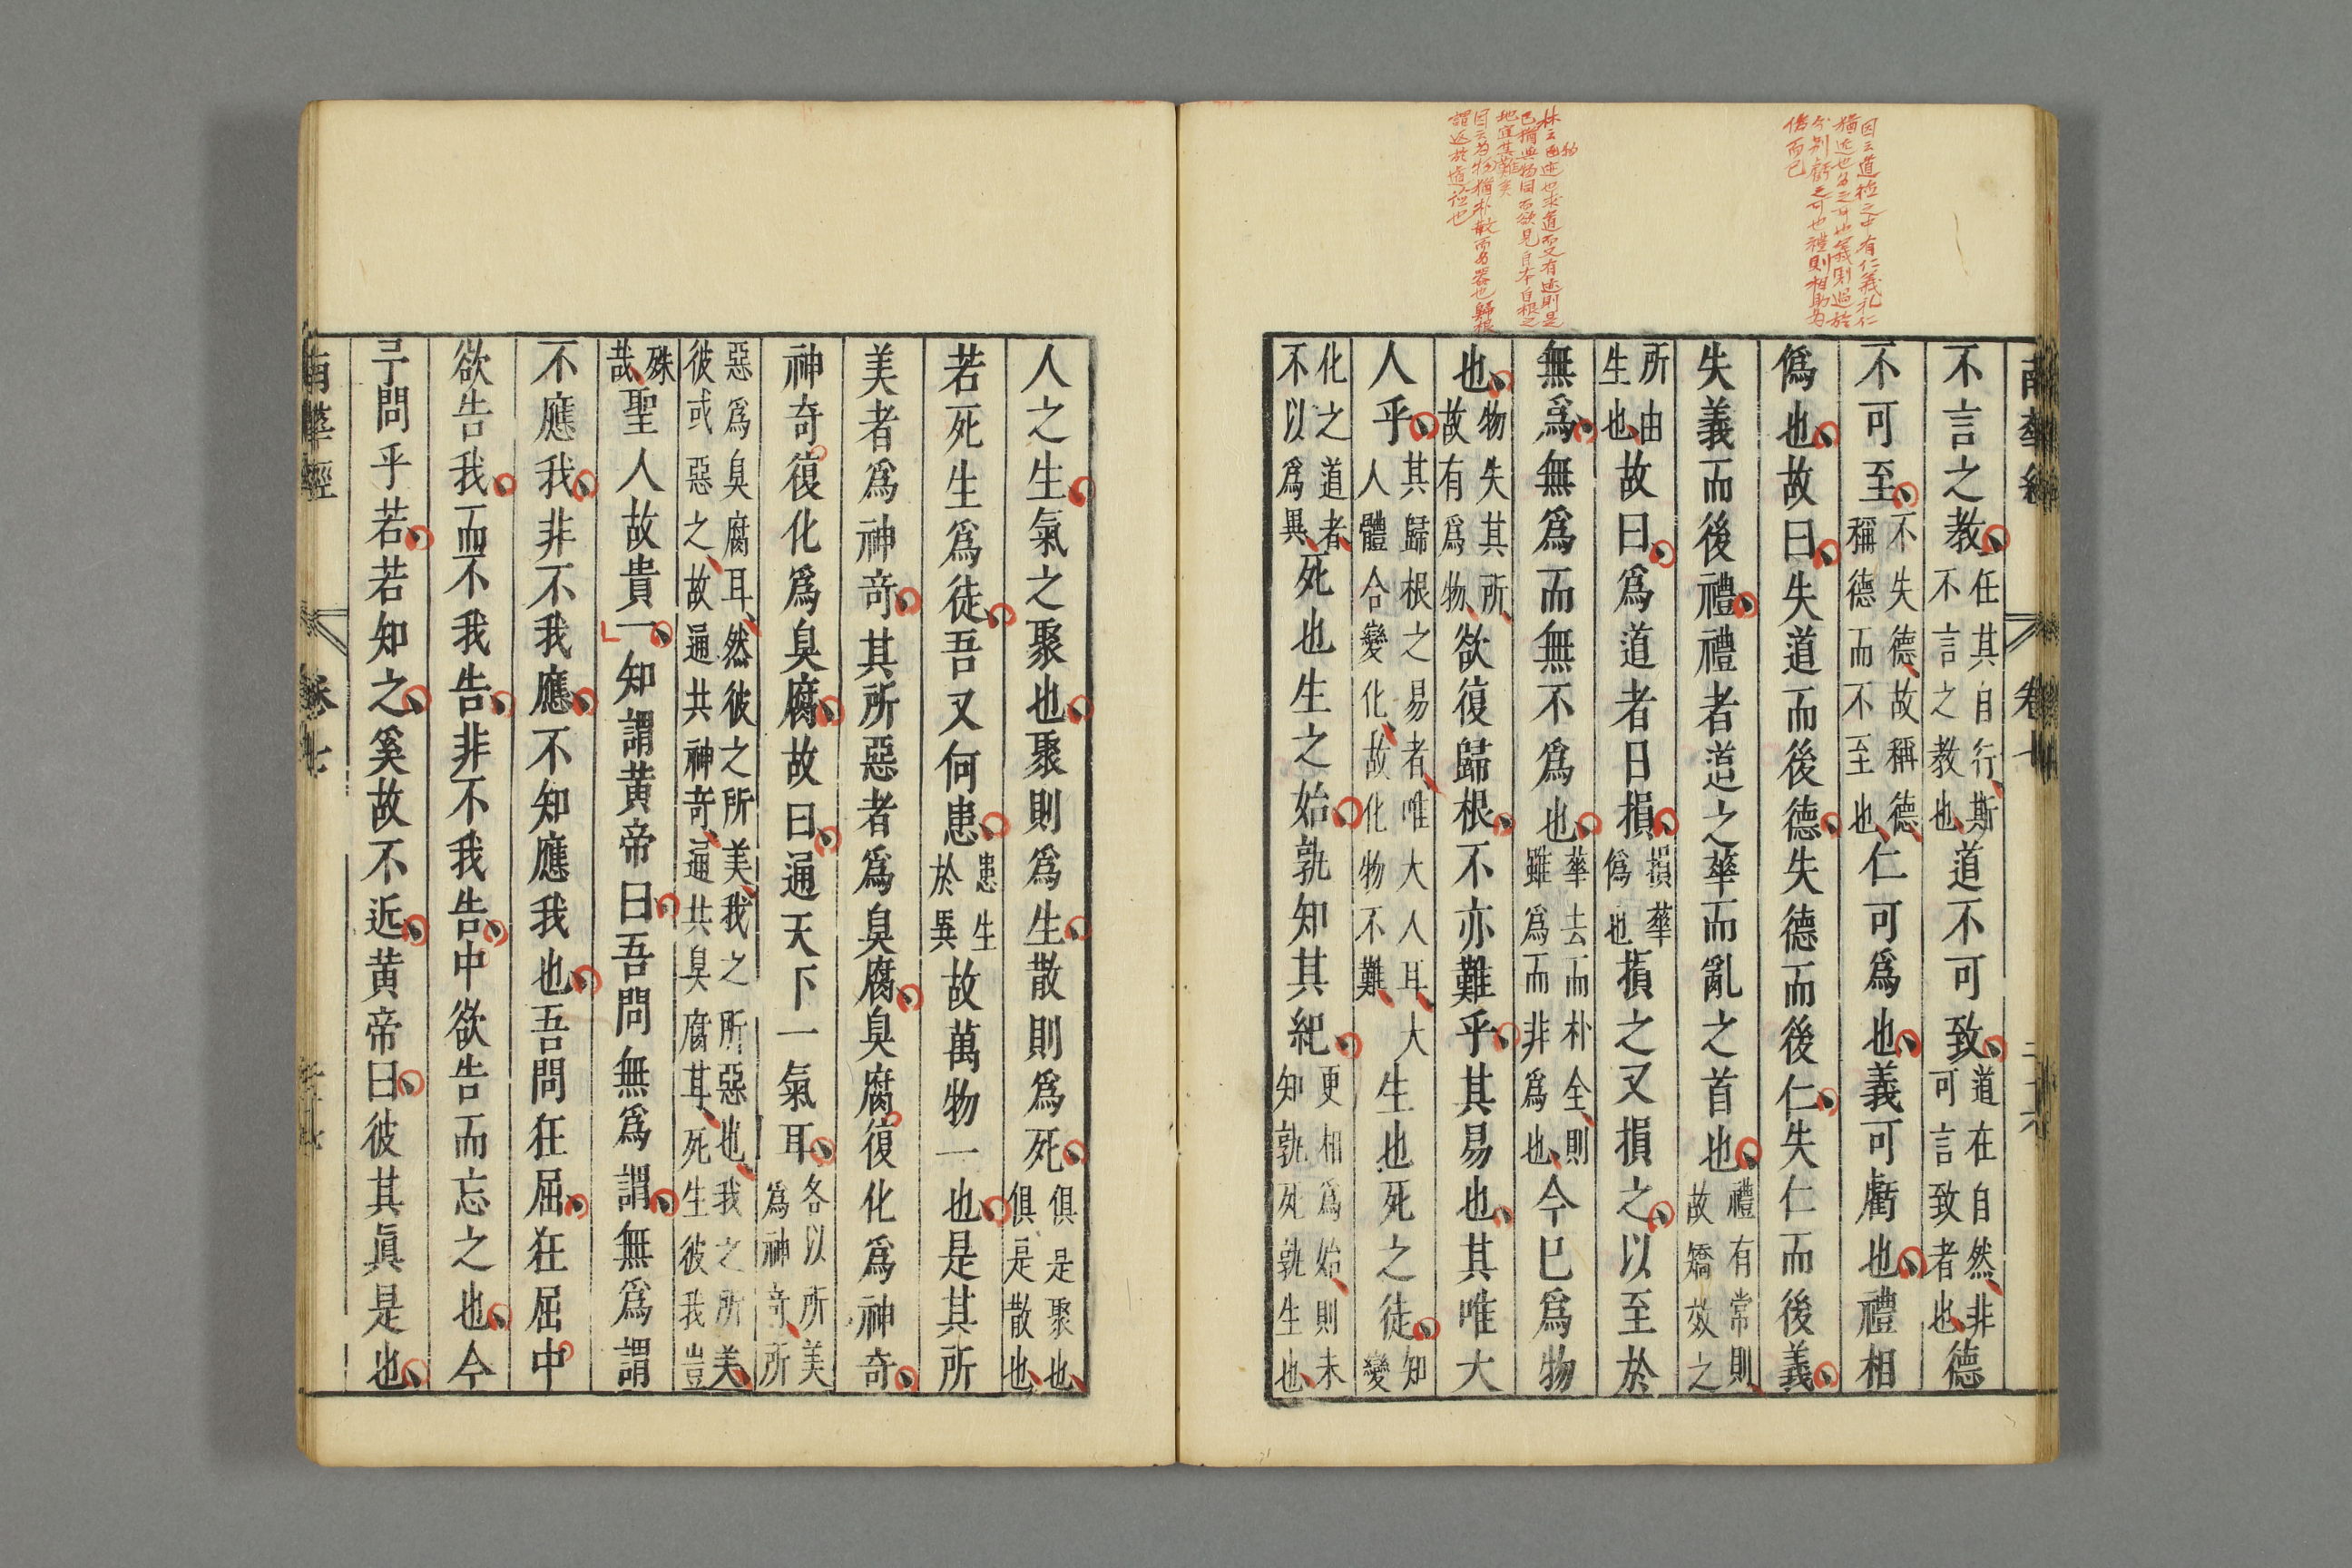 因云道極之中有仁義礼仁
猶近也為之可也義則過於
分別虧之可也禮則相助為
偽而已
物
已猶與物同而欲見自本自根之
因云為物猶朴散而為器也歸根
南華經 卷七
不言之教任其自行斯不言之教也道不可致道在自然非可言致者也德
不可至不失德故稱德稱德而不至也仁可爲也義可虧也禮相
僞也故曰失道而後德失德而後仁失仁而後義
失義而後禮禮者道之華而亂之首也禮有常則故矯效之
所由生也故曰爲道者日損損華僞也損之又損之以至於
無爲無爲而無不爲也華去而朴全則雖爲而非爲也今已爲物
也物失其所故有爲物欲復歸根不亦難乎其易也其唯大
人乎其歸根之易者唯大人耳大人體合變化故化物不難生也死之徒知變
化之道者不以爲異死也生之始孰知其紀更相爲始則未知孰死孰生也
人之生氣之聚也聚則爲生散則爲死俱是聚也俱是散也
若死生爲徒吾又何患患生於異故萬物一也是其所
美者爲神奇其所惡者爲臭腐臭腐復化爲神奇
神奇復化爲臭腐故曰通天下一氣耳各以所美爲神奇所
惡爲臭腐耳然彼之所美我之所惡也我之所美彼或惡之故通共神奇通共臭腐耳死生彼我豈
殊哉聖人故貴一知謂黄帝曰吾問無爲謂無爲謂
不應我非不我應不知應我也吾問狂屈狂屈中
欲告我而不我告非不我告中欲告而忘之也今
予問乎若若知之奚故不近黄帝曰彼其眞是也
南華經 卷七